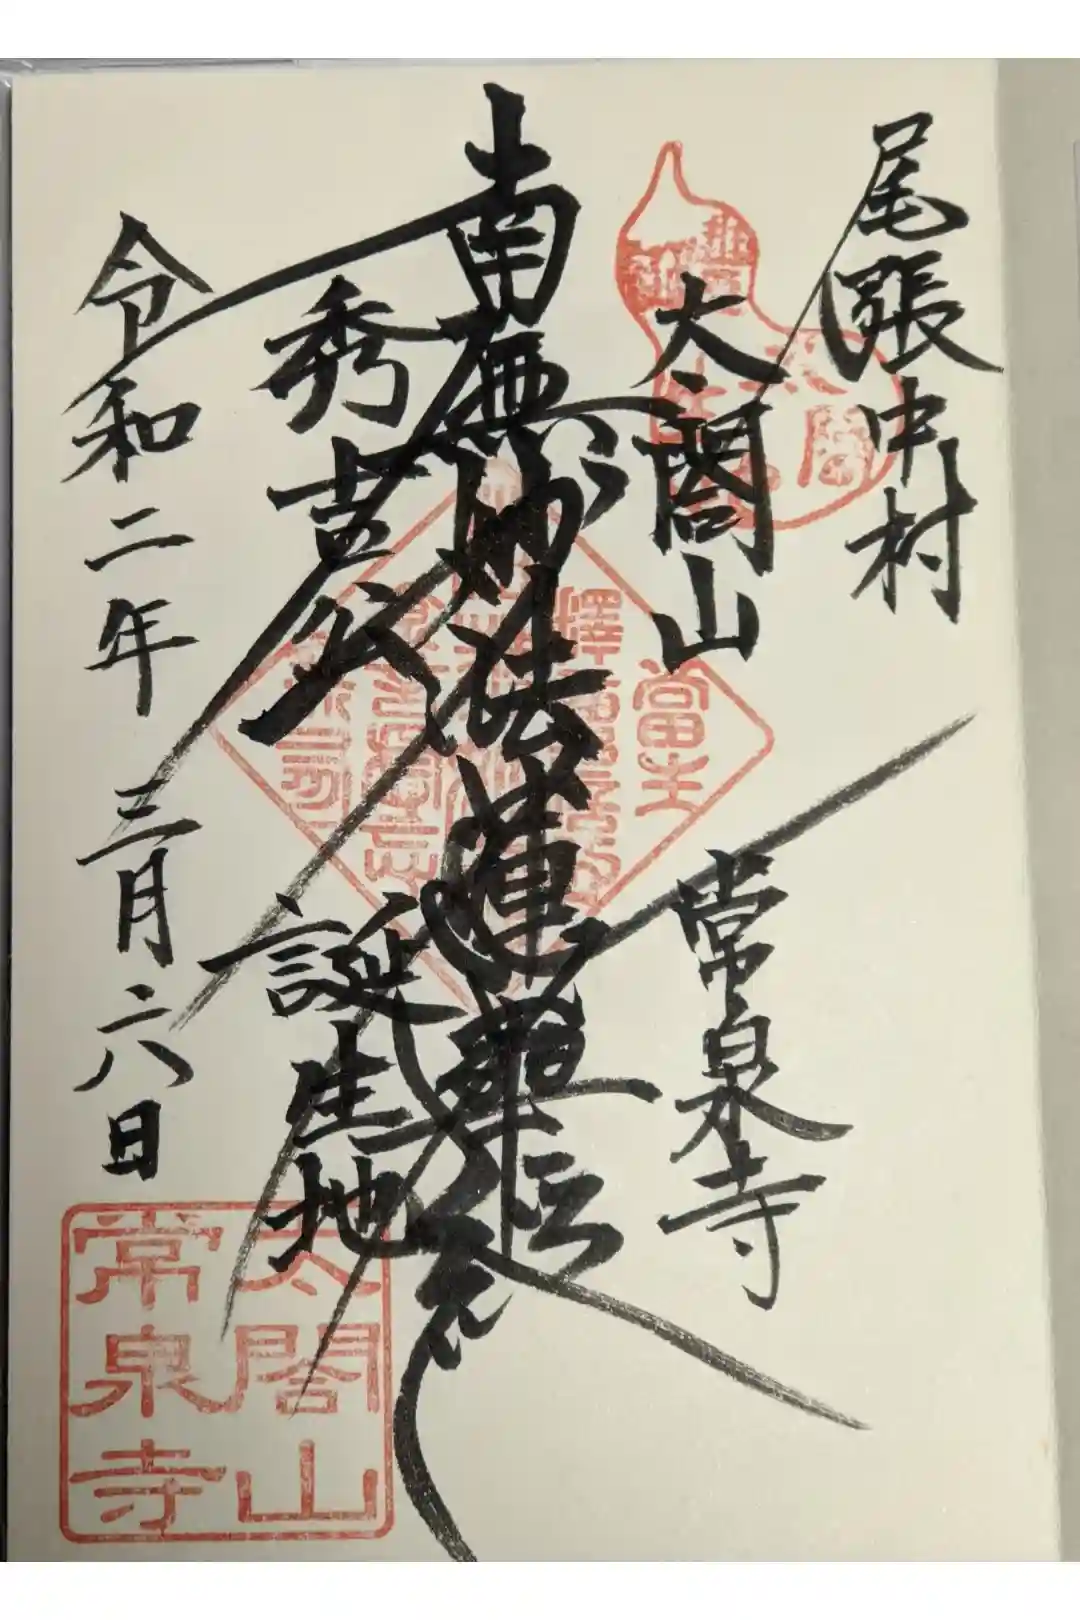 尾張中村
太閤山
常泉寺
南無妙法蓮華経
秀吉公
誕生地
令和二年三月二八日
當主
太閤山
常泉寺